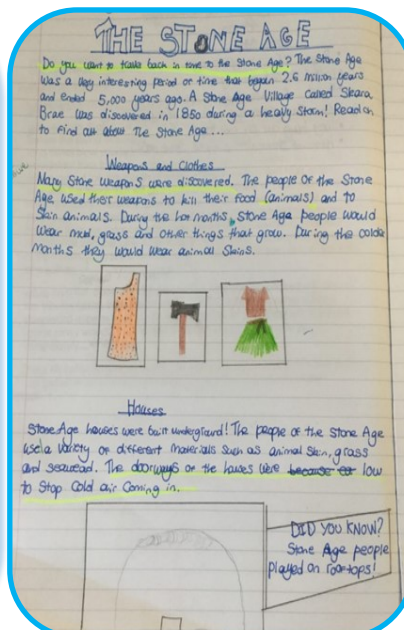 THE STONE AGE
Do you want to take back in time to the Stone Age? The Stone Age
was a very interesting period of time that began 2.6 million years
and ended 5,000 years ago. A Stone Age Village called Skara
Brae was discovered in 1850 during a heavy storm! Read on
to find out about The Stone Age...
Weapons and Clothes
Many Stone weapons were discovered. The people of the Stone
Age used their weapons to kill their food (animals) and to
skin animals. During the hot months, stone Age people would
wear mud, grass and other things that grow. During the colder
months they would wear animal skins.
Houses
Stone Age houses were built underground! The people of the Stone Age
use a variety of different materials such as animal skin, grass
and seaweed. The doorways of the houses were because low
to stop cold air coming in.
DID YOU KNOW?
Stone Age people
played on rooftops!